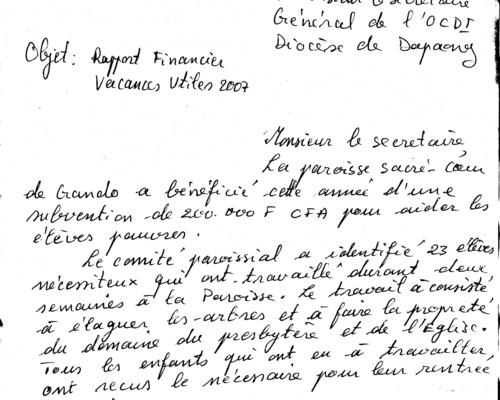 Secrétaire
Général de l'OCDI
Diocèse de Dapaong
Objet: Rapport Financier
Vacances Utiles 2007
Monsieur le secretaire
La paroisse sacré-Cœur
de Gando a bénéficié cette année d'une
subvention de 200.000 F CFA pour aider les
élèves pauvres.
Le comité paroissial a identifié 23 élèves
nécessiteux qui ont travaillé durant deux
semaines à la Paroisse. Le travail à consisté
à élaguer les arbres et à faire la propreté
du domaine du presbytère et de l'Église.
Tous les enfants qui ont eu à travailler
ont reçus le nécessaire pour leur rentrée